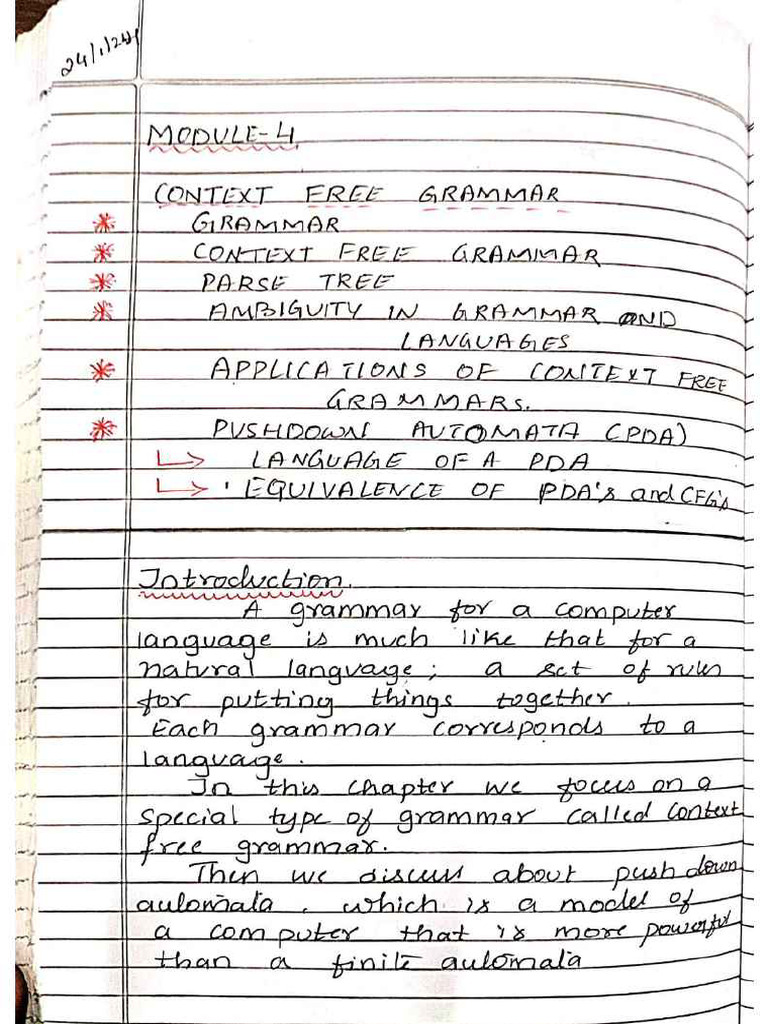 24/1/24
MODULE-4
CONTEXT FREE GRAMMAR
GRAMMAR
CONTEXT FREE GRAMMAR
PARSE TREE
AMBIGUITY IN GRAMMAR AND
LANGUAGES
APPLICATIONS OF CONTEXT FREE
GRAMMARS.
PUSHDOWN AUTOMATA (PDA)
LANGUAGE OF A PDA
EQUIVALENCE OF PDA's and CFG's
Introduction.
A grammar for a computer
language is much like that for a
natural language; a set of rules
for putting things together.
Each grammar corresponds to a
language.
In this chapter we focus on a
special type of grammar called Context
free grammar.
Then we discuss about push down
automata, which is a model of
a computer that is more powerful
than a finite automata